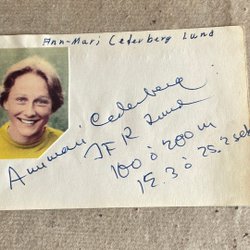 Ann-Mari Cederberg Lund
Annmari Cederberg
IFK Lund
100 o 200 m
12.3 o 25.2 sek